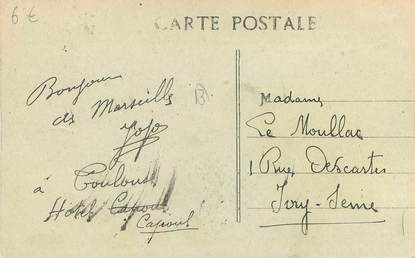 6€
CARTE POSTALE
Bonjour
de Marseille
Jojo
à Toulouse
Hotel Capoul
Capoul
B
Madame
Le Moullac
1 Rue Descartes
Ivry-Seine